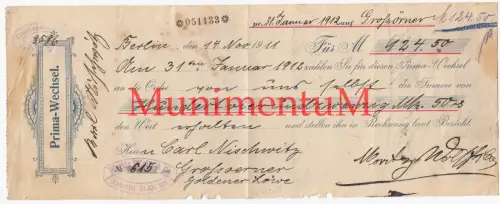 *051133*
pr. 31. Januar 1912 auf Grossörner M 124.50
3596
Berlin, den 14 Nov 1911
Für M 924.50
Am 31ten Januar 1912 zahlen Sie für diesen Prima-Wechsel
an die Ordre von uns selbst die Summe von
Mk. 50
MunimentuM
den Wert erhalten und stellen ihn in Rechnung laut Bericht.
Herrn Carl Nischwitz
Grossoerner
Goldener Löwe
Moritz
Prima-Wechsel.
Carl
No 615